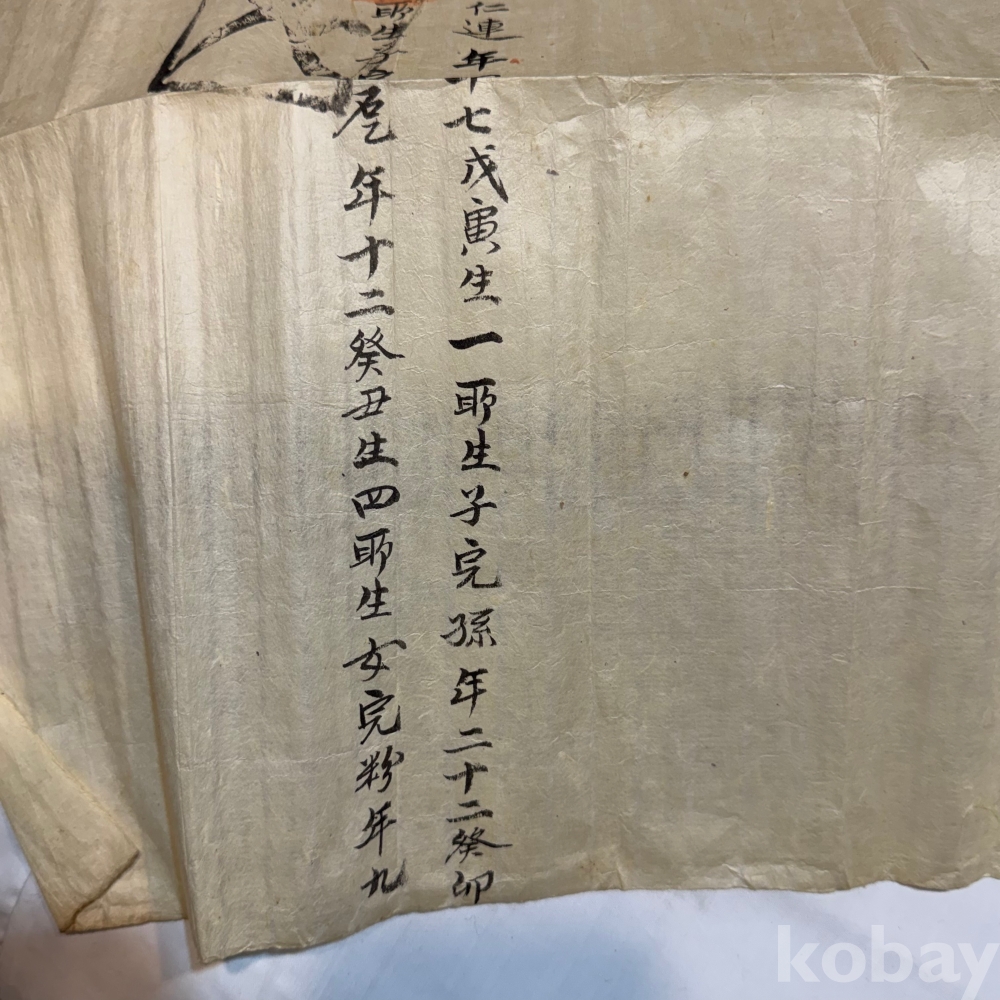 仁連年十七戊寅生一所生子完孫年二十二癸卯
所生乭年十二癸丑生四所生女完粉年九
kobay